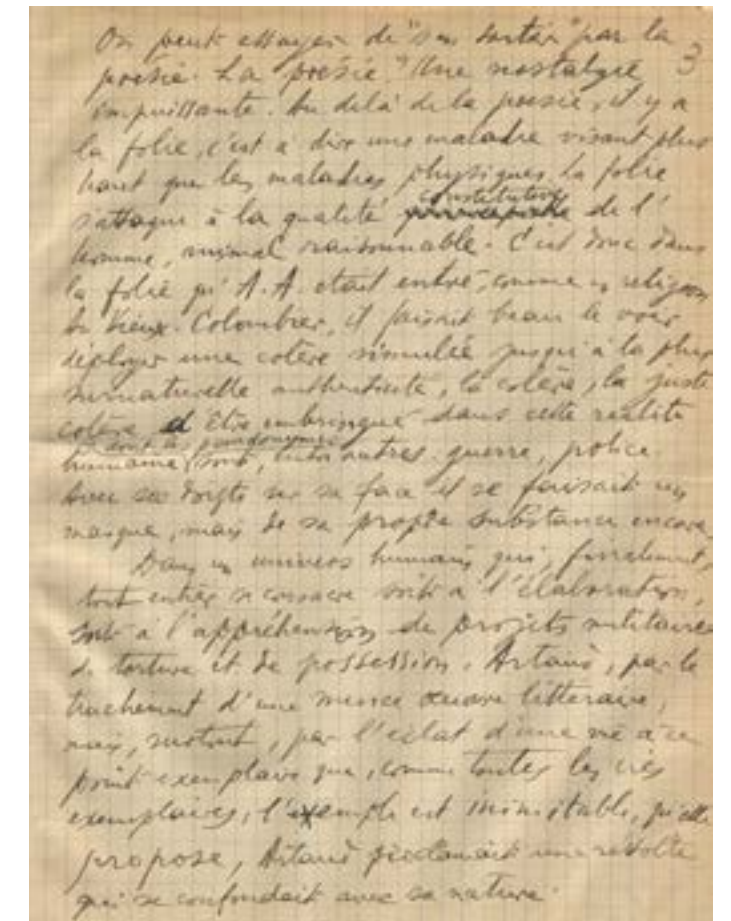 On peut essayer de "s'en sortir" par la
3
poésie. La poésie? Une nostalgie
impuissante. Au delà de la poésie, il y a
la folie, c'est à dire une maladie visant plus
haut que les maladies physiques. La folie
s'attaque à la qualité constitutive de l'
homme, animal raisonnable. C'est donc dans
la folie qu'A.A. était entré, comme en religion
Au Vieux-Colombier, il faisait beau le voir
déployer une colère simulée jusqu'à la plus
surnaturelle authenticité, la colère, la juste
colère d'être embringué dans cette réalité
humaine dont, entre autres guerre, police
Avec ses doigts sur sa face il se faisait un
masque, mais de sa propre substance encore.
Dans un univers humain qui, finalement,
tout entier se consacre soit à l'élaboration,
soit à l'appréhension de projets militaires
de torture et de possession, Artaud, par le
truchement d'une mince œuvre littéraire,
mais, surtout, par l'éclat d'une vie à ce
point exemplaire que, comme toutes les vies
exemplaires, l'exemple est inimitable, qu'elle
propose, Artaud proclamait une révolte
qui se confondait avec sa nature.